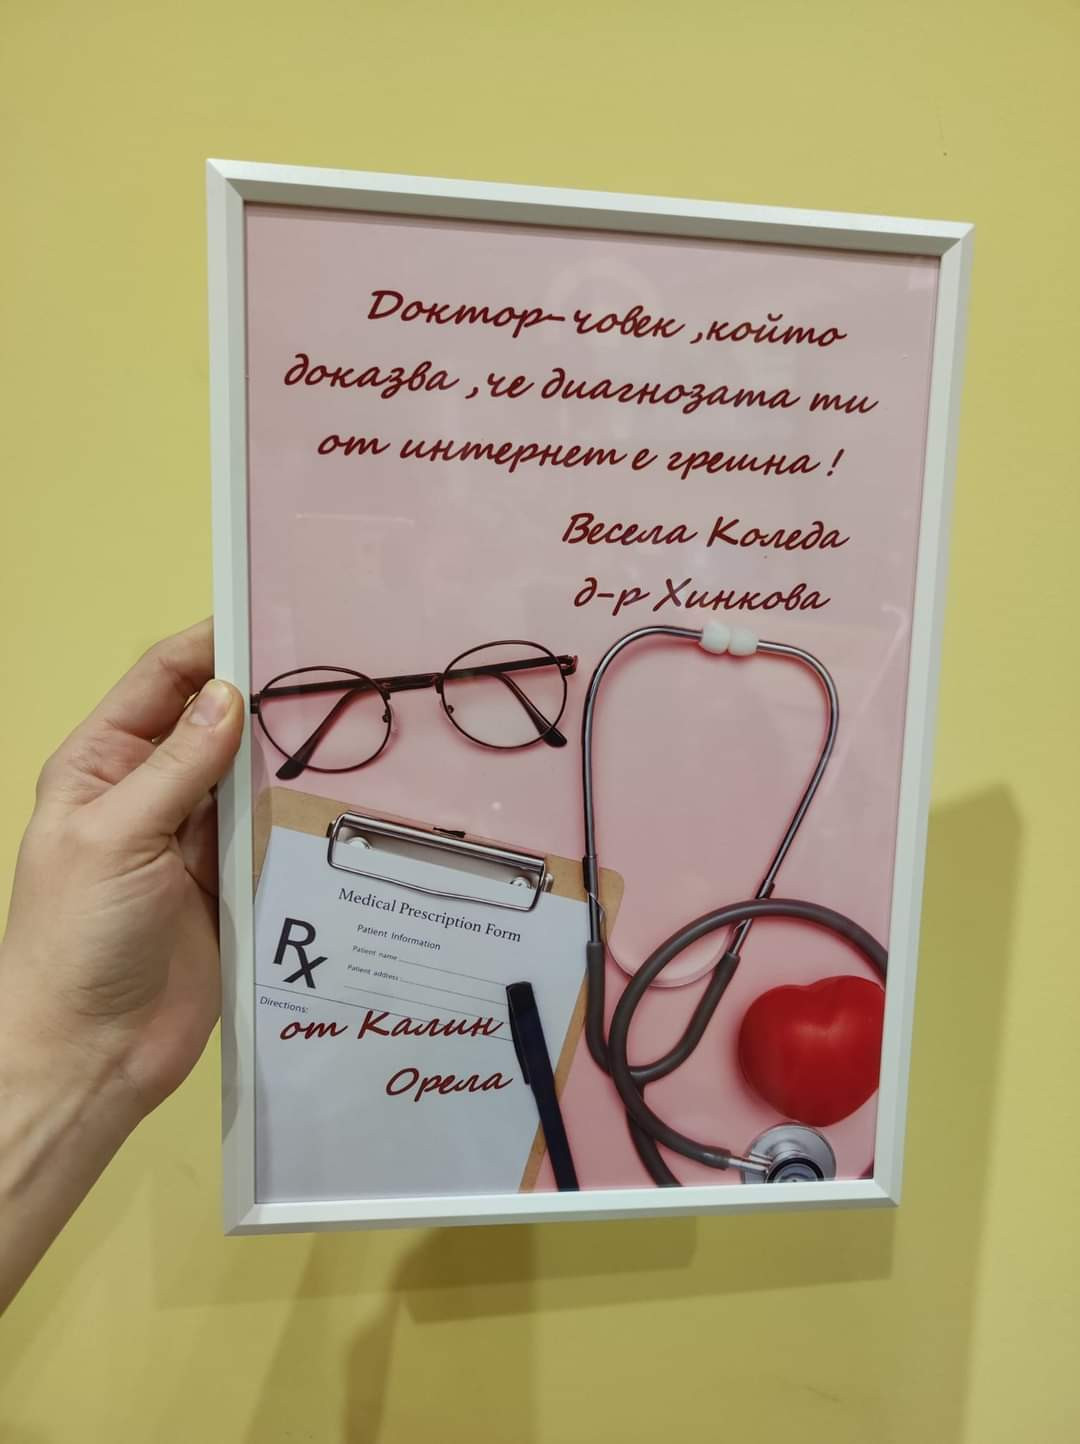 Доктор-човек ,който
доказва ,че диагнозата ти
от интернет е грешна !
Весела Коледа
д-р Хинкова
Medical Prescription Form
Rx
Patient Information
Patient name
Patient address
Directions:
от Калин
Орела